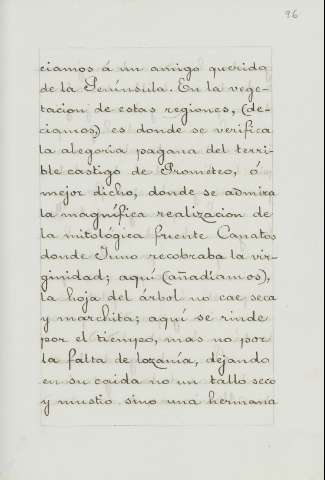 96
ciamos á un amigo querido
de la Península. En la vege-
tacion de estas regiones, (de-
ciamos,) es donde se verifica
la alegoria pagana del terri-
ble castigo de Prometeo, ó
mejor dicho, donde se admira
la magnífica realizacion de
la mitológica fuente Canatos
donde Juno recobraba la vir-
ginidad; aquí (añadíamos),
la hoja del árbol no cae seca
y marchita; aquí se rinde
por el tiempo, mas no por
la falta de lozanía, dejando
en su caida no un tallo seco
y mustio sino una hermana